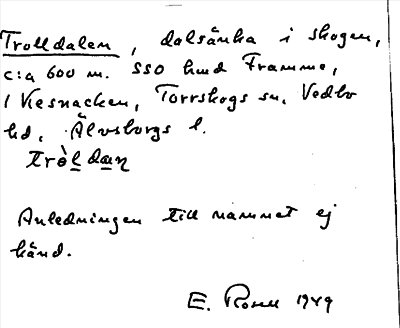 Trolldalen, dalsänka i skogen,
c:a 600 m. SSO hmd Framme,
i Vesnacken, Torrskogs sn, Vedbo
hd, Älvsborgs l.
tròldaṇ
Anledningen till namnet ej
känd.
E. Rosell 1949